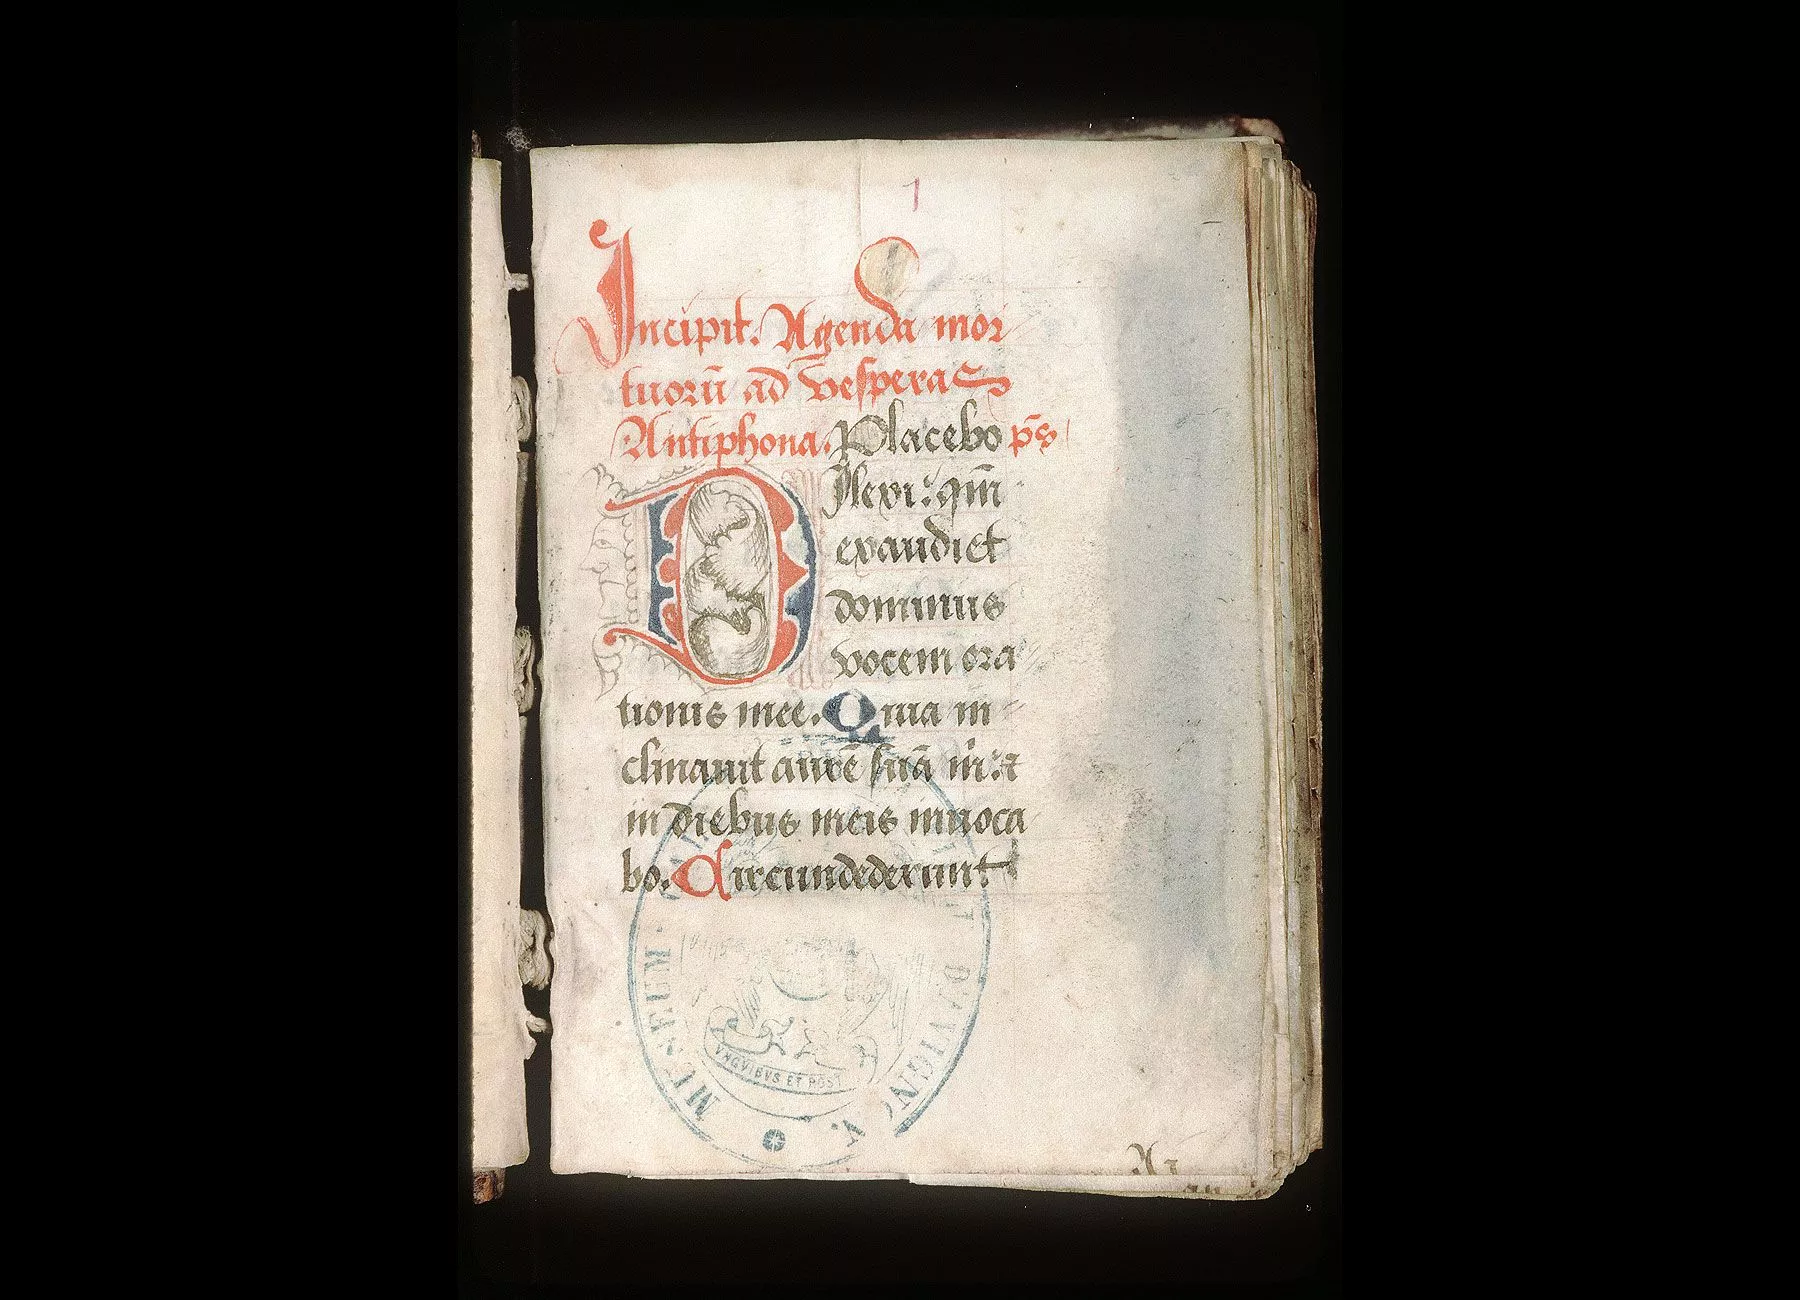 1
Incipit. Agenda mor
tuorū ad vesperas
Antiphona. Placebo p̄s
DIlexi: qm̄
exaudiet
dominus
vocem ora
tionis mee. Quia in
clinauit aurē suā m̄: ⁊
in diebus meis inuoca
bo. Circundederunt
MUSEUM CALVET D'AVIGNON
UNGUIBUS ET ROST